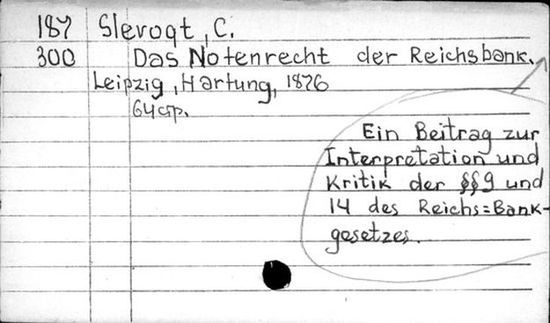 187 Slevogt, C.
300 Das Notenrecht der Reichsbank.
Leipzig, Hartung, 1876
64 стр.
Ein Beitrag zur
Interpretation und
Kritik der §§ 9 und
14 des Reichs=Bank-
gesetzes.